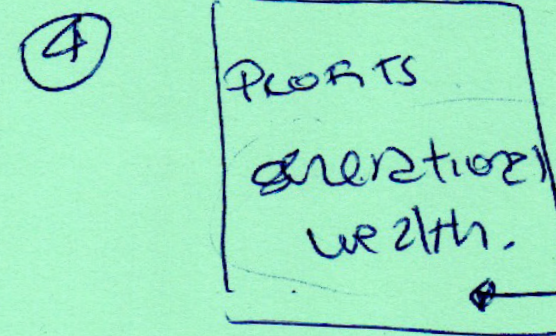 4
Profits
generational
wealth.